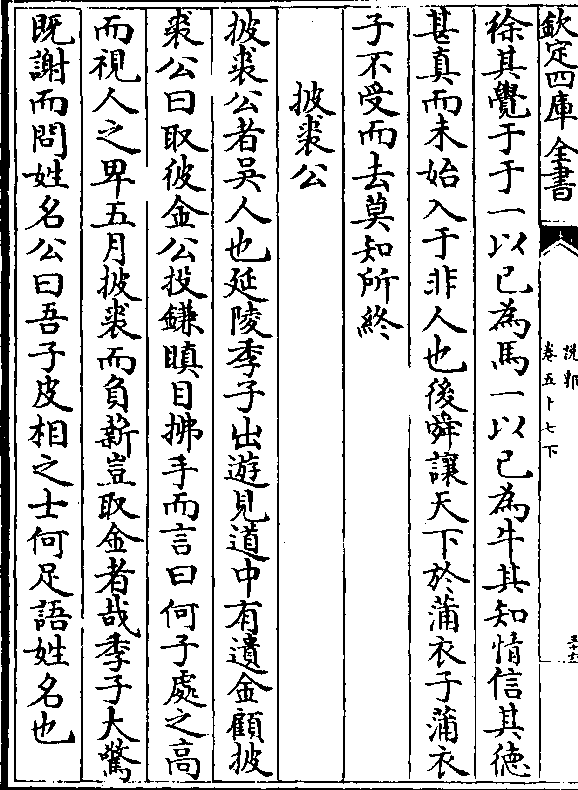 欽定四庫全書
說郛
卷五十七下
徐其覺于于一以己為馬一以己為牛其知情信其德
甚真而未始入于非人也後舜讓天下於蒲衣子蒲衣
子不受而去莫知所終
披裘公
披裘公者吳人也延陵季子出遊見道中有遺金顧披
裘公曰取彼金公投鎌瞋目拂手而言曰何子處之高
而視人之卑五月披裘而負薪豈取金者哉季子大驚
既謝而問姓名公曰吾子皮相之士何足語姓名也